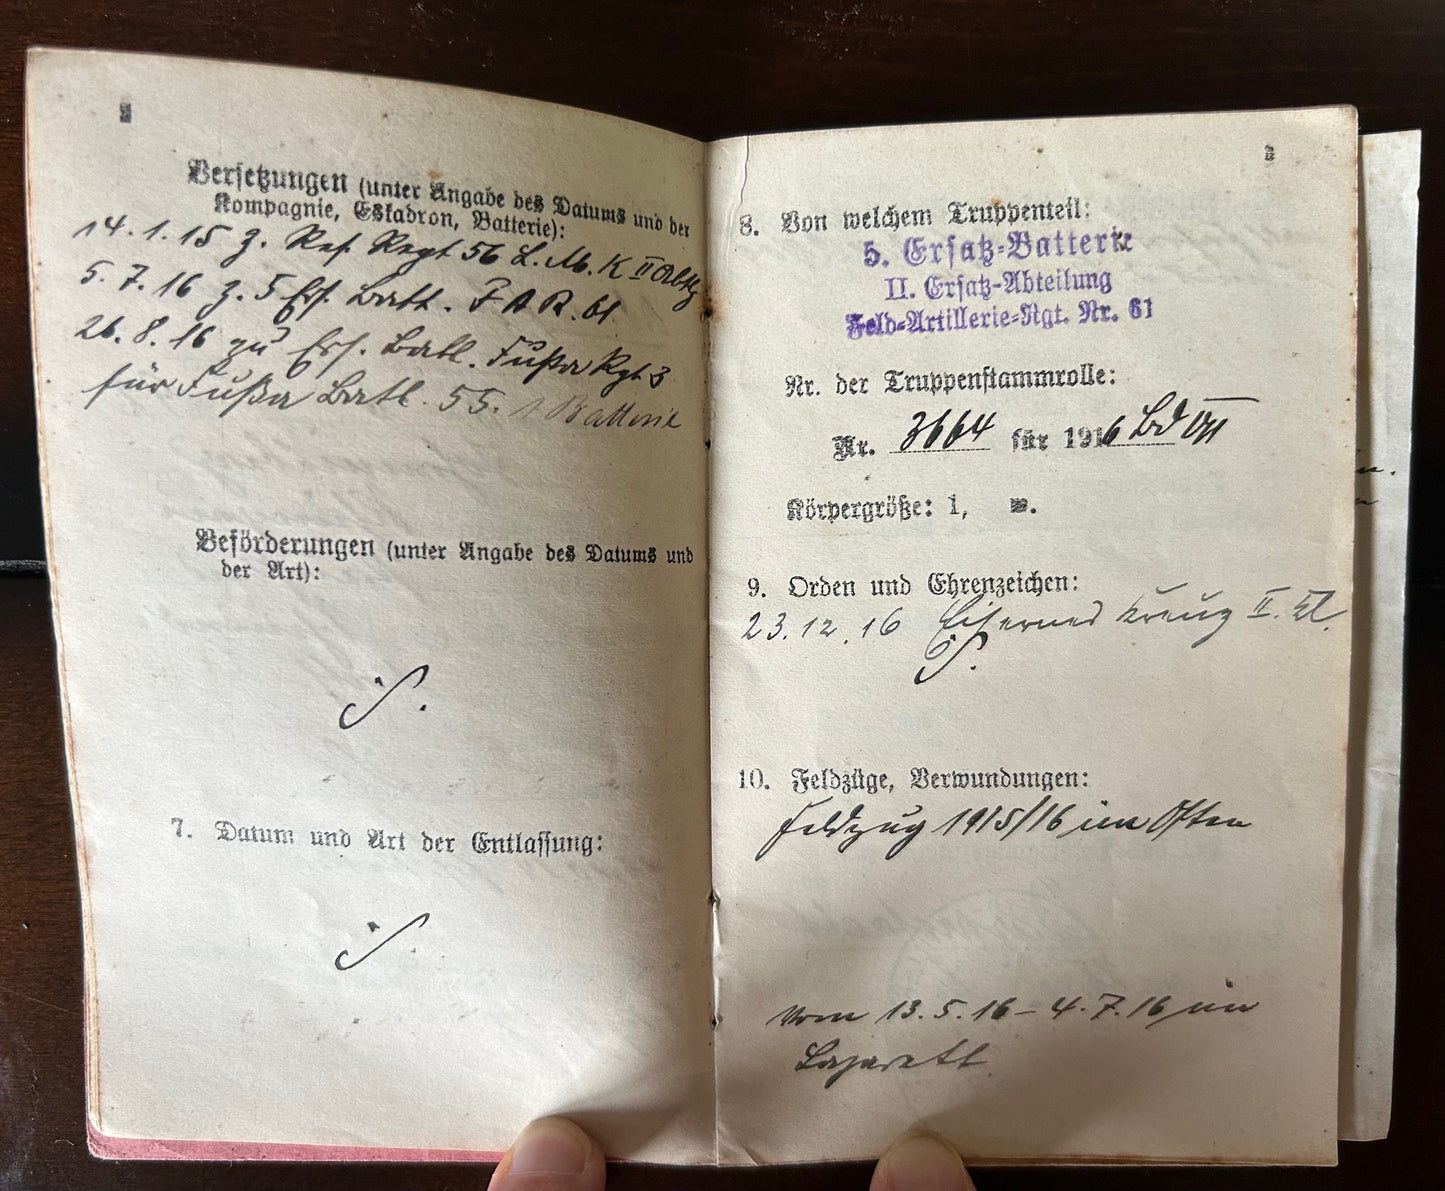 Versetzungen (unter Angabe des Datums und der
Kompagnie, Eskadron, Batterie):
14.1.15 z. Res. Regt 56 L. M. K II
5.7.16 z. 5 Ers. Batt. F A R. 61
26.8.16 zu Ers. Batl. Fußa Rgt 3
für Fußa Batl. 55. 1 Batterie
Beförderungen (unter Angabe des Datums und
der Art):
7. Datum und Art der Entlassung:
8. Von welchem Truppenteil:
5. Ersatz-Batterie
II. Ersatz-Abteilung
Feld-Artillerie-Rgt. Nr. 61
Nr. der Truppenstammrolle:
Nr. 3664 für 1916 Bd VII
Körpergröße: 1, m.
9. Orden und Ehrenzeichen:
23.12.16 Eisernes Kreuz II. Kl.
10. Feldzüge, Verwundungen:
Feldzug 1915/16 im Osten
Vom 13.5.16 – 4.7.16 im
Lazarett.